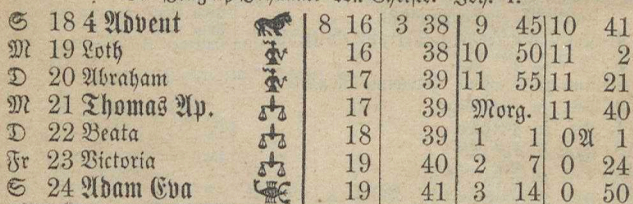 S 18 4 Advent 8 16 3 38 9 45 10 41
M 19 Loth 16 38 10 50 11 2
D 20 Abraham 17 39 11 55 11 21
M 21 Thomas Ap. 17 39 Morg. 11 40
D 22 Beata 18 39 1 1 0A 1
Fr 23 Victoria 19 40 2 7 0 24
S 24 Adam Eva 19 41 3 14 0 50